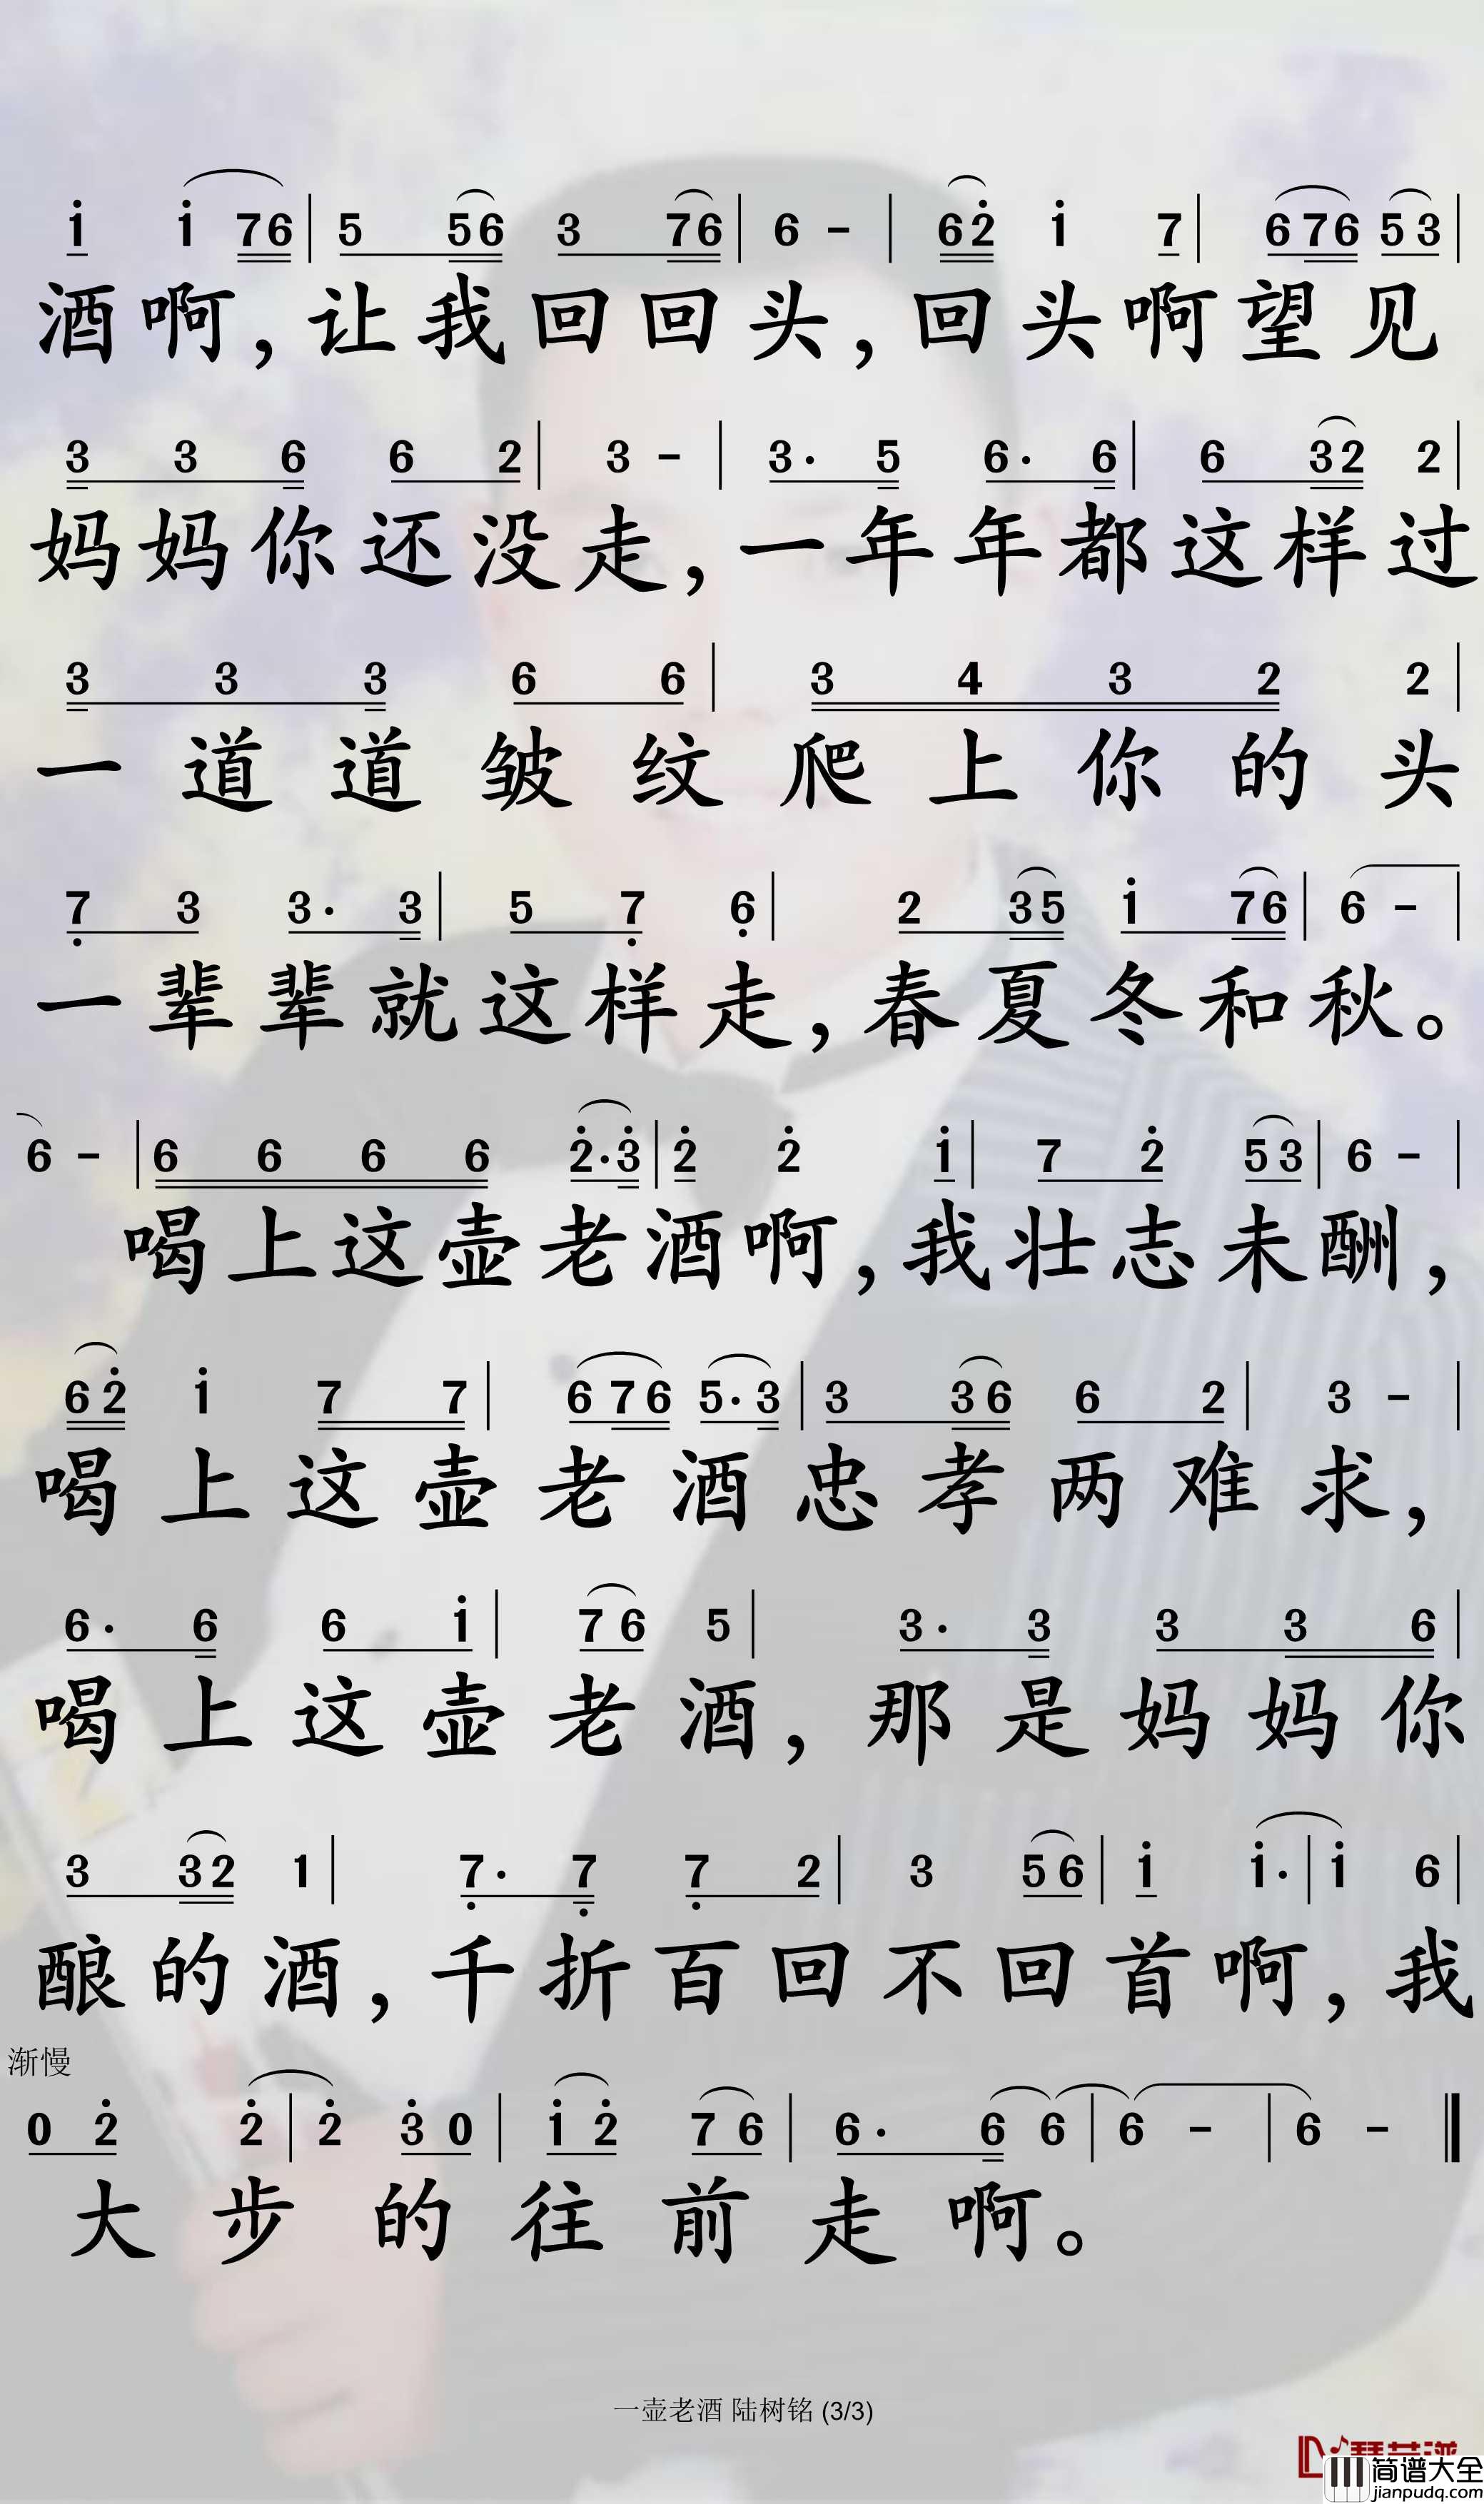 i i 76 | 5 56 3 76 | 6 - | 62̇ i 7 | 676 53 |
酒啊，让我回回头，回头啊望见
3 3 6 6 2 | 3 - | 3· 5 6· 6 | 6 32 2 |
妈妈你还没走，一年年都这样过
3 3 3 6 6 | 3 4 3 2 2 |
一道道皱纹爬上你的头
7̣ 3 3· 3 | 5 7̣ 6̣ | 2 35 i 76 | 6 - |
一辈辈就这样走，春夏冬和秋。
6 - | 6 6 6 6 2̇·3̇ | 2̇ 2̇ i | 7 2̇ 53 | 6 - |
喝上这壶老酒啊，我壮志未酬，
62̇ i 7 7 | 676 5·3 | 3 36 6 2 | 3 - |
喝上这壶老酒忠孝两难求，
6· 6 6 i | 76 5 | 3· 3 3 3 6 |
喝上这壶老酒，那是妈妈你
3 32 1 | 7̣· 7̣ 7̣ 2 | 3 56 | i i· | i 6 |
酿的酒，千折百回不回首啊，我
渐慢
0 2̇ 2̇ | 2̇ 3̇ 0 | i 2̇ 7 6 | 6· 6 6 | 6 - | 6 - ‖
大步的往前走啊。
一壶老酒 陆树铭 (3/3)
简谱大全
jianpudq.com